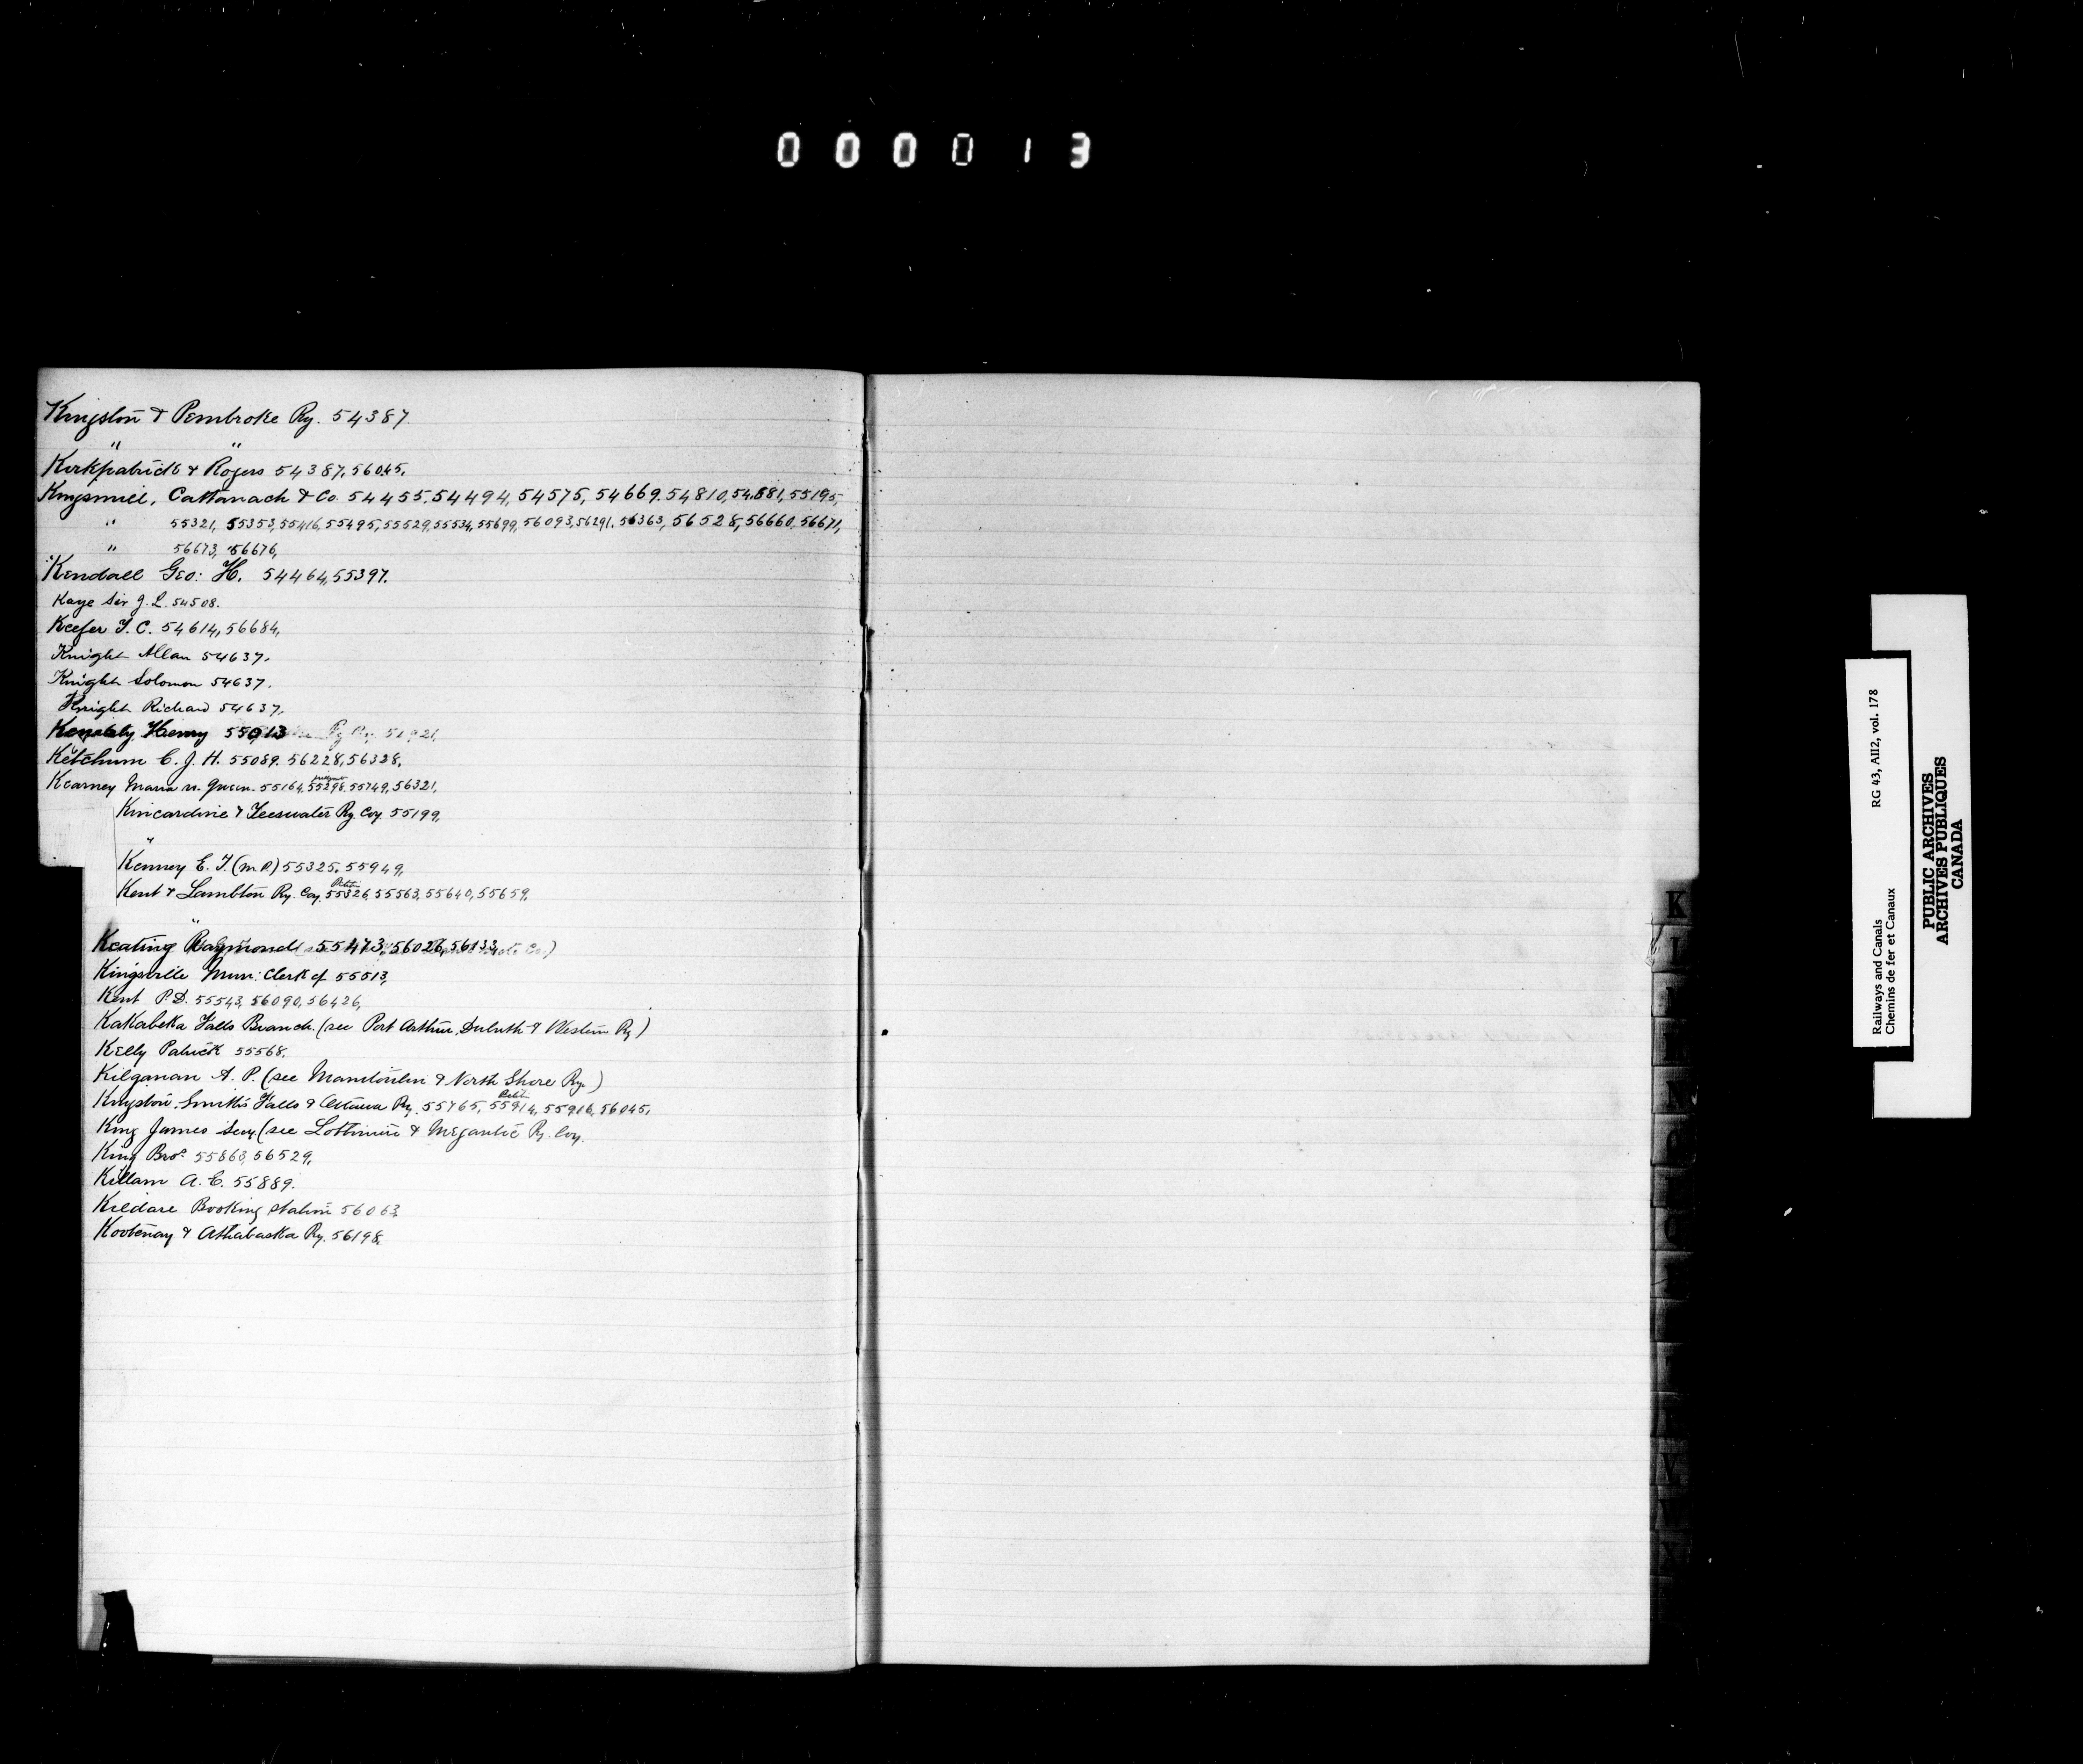 000013
Kingston & Pembroke Ry. 54387.
" "
Kirkpatrick & Rogers 54387, 56045.
Kingsmill, Cattanach & Co. 54455, 54494, 54575, 54669. 54810, 54881, 55195,
" 55321, 55353, 55416, 55495, 55529, 55534, 55699, 56093, 56291. 56363, 56528, 56660, 56671,
" 56673, 56676,
Kendall Geo: H. 54464, 55397.
Kaye Sir J. L. 54508.
Keefer T. C. 54614, 56684,
Knight Allan 54637.
Knight Solomon 54637.
Knight Richard 54637.
Henry 55013
Ketchum C. J. H. 55089. 56228, 56328,
Kearney Maria vs. Queen. 55164, 55298, 55749, 56321,
Kincardine & Teeswater Ry. Coy 55199,
"
Kenney E. T. (M.P.) 55325, 55949,
Kent & Lambton Ry. Coy. 55326, 55563, 55640, 55659,
"
Keating Raymond 55473, 56026, 56133,
Kingsville Mun: Clerk of 55513,
Kent P.D. 55543, 56090, 56426,
Kakabeka Falls Branch. (see Port Arthur, Duluth & Western Ry)
Kelly Patrick 55568.
Kilganan A. P. (see Manitoulin & North Shore Ry.)
Kingston, Smiths Falls & Ottawa Ry. 55765, 55914, 55916, 56045,
King James Secy. (see Lotbiniere & Megantic Ry. Coy.
King Bros. 55863, 56529,
Killam A. C. 55889.
Kildare Booking Station 56063,
Kootenay & Athabaska Ry. 56198,
K
Railways and Canals RG 43, AII2, vol. 178
Chemins de fer et Canaux
PUBLIC ARCHIVES
ARCHIVES PUBLIQUES
CANADA